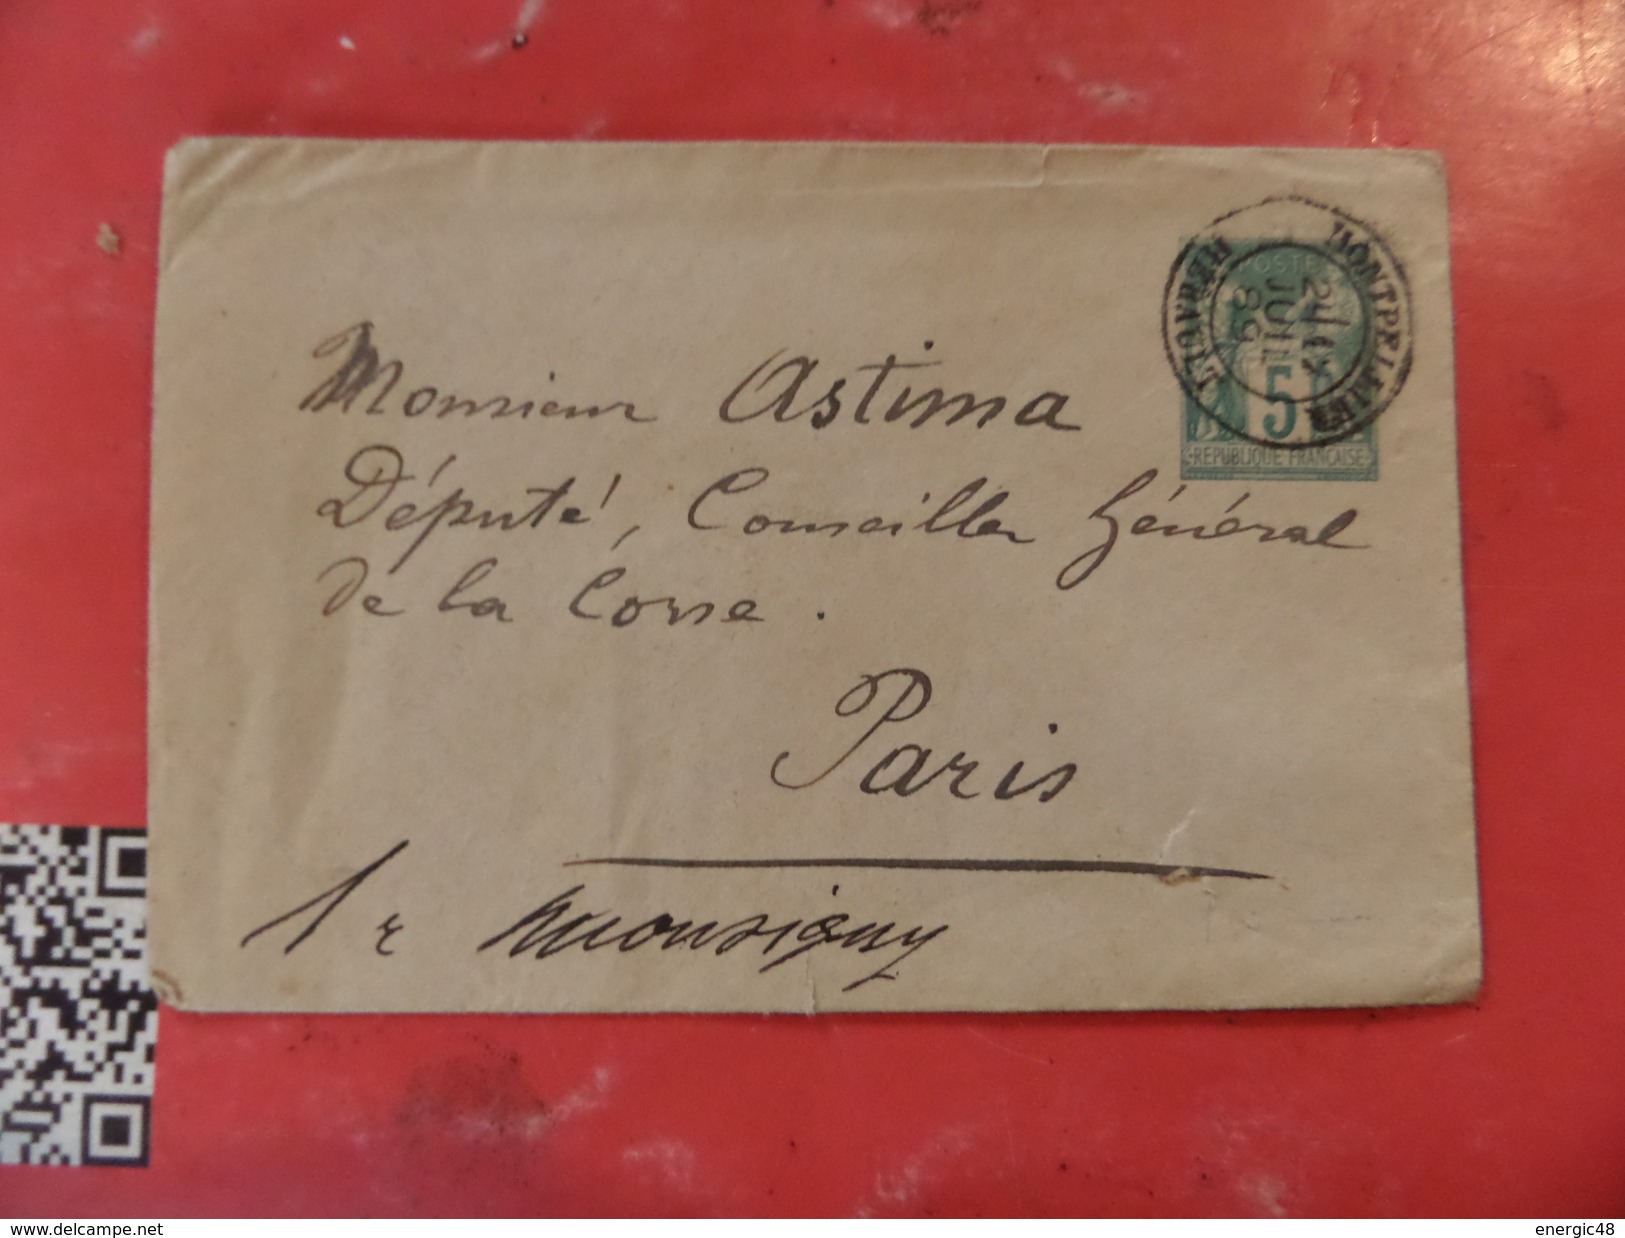 MONTPELLIER
HERAULT
JUIL
89
POSTES
5
REPUBLIQUE FRANÇAISE
Monsieur Astima
Député, Conseiller Général
de la Corse.
Paris
1 r monsigny
www.delcampe.net
energic48